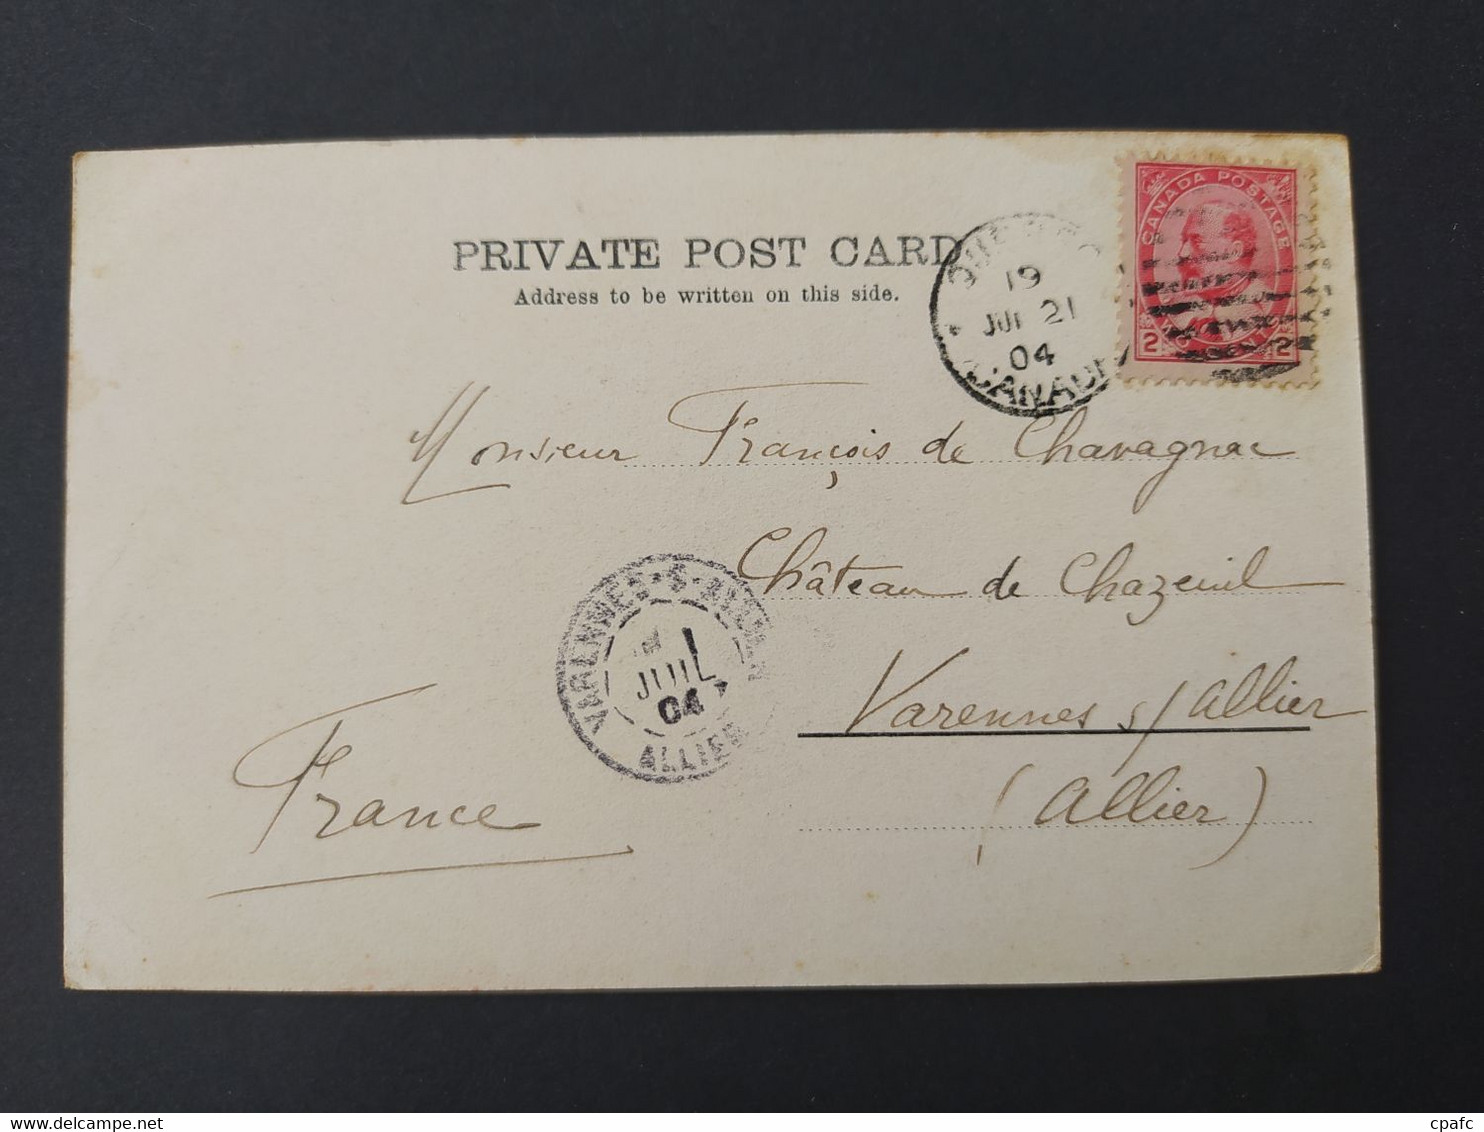 CANADA POSTAGE
2 2
PRIVATE POST CARD
Address to be written on this side.
19
21
04
CANADA
Monsieur François de Chavagnac
Château de Chazeuil
Varennes s/Allier
(Allier)
France
VARENNES-S-ALLIER
JUIL
04
ALLIER
cpafc